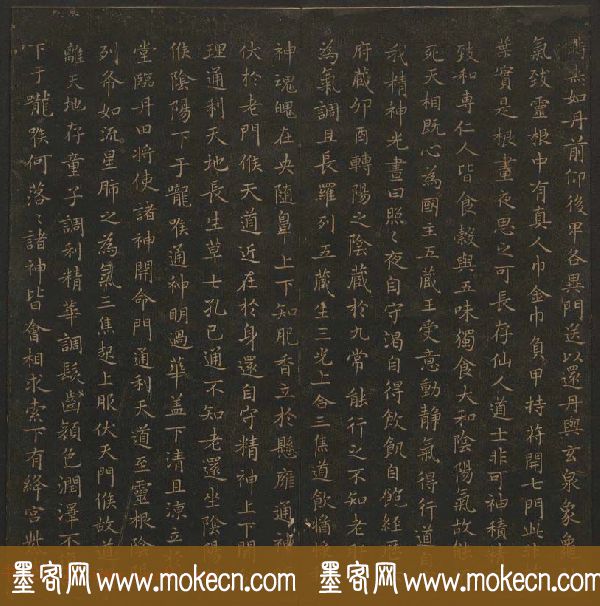 赤如丹前仰後卑各異門送以還丹與玄泉象龜
氣致靈根中有真人巾金巾負甲持苻開七門此非
葉實是根晝夜思之可長存仙人道士非可神積精
致和專仁人皆食穀與五味獨食大和陰陽氣故能
死天相既心為國主五藏王受意動靜氣得行道自
我精神光晝日照〻夜自守渴自得飲飢自飽經歷
府藏卯酉轉陽之陰藏於九常能行之不知老肝
為氣調且長羅列五藏生三光上合三焦道飲醬漿
神魂魄在央隨鼻上下知肥香立於懸雍通神
伏於老門候天道近在於身還自守精神上下開
理通利天地長生草七孔已通不知老還坐陰陽
候陰陽下于嚨喉通神明過華蓋下清且涼立於
堂臨丹田將使諸神開命門通利天道至靈根陰陽
列布如流星肺之為氣三焦起上服伏天門候故道
離天地存童子調利精華調髮齒顏色潤澤不
下于嚨喉何落〻諸神皆會相求索下有絳宮紫
墨客网 www.mokecn.com
墨客网 www.mokecn.com